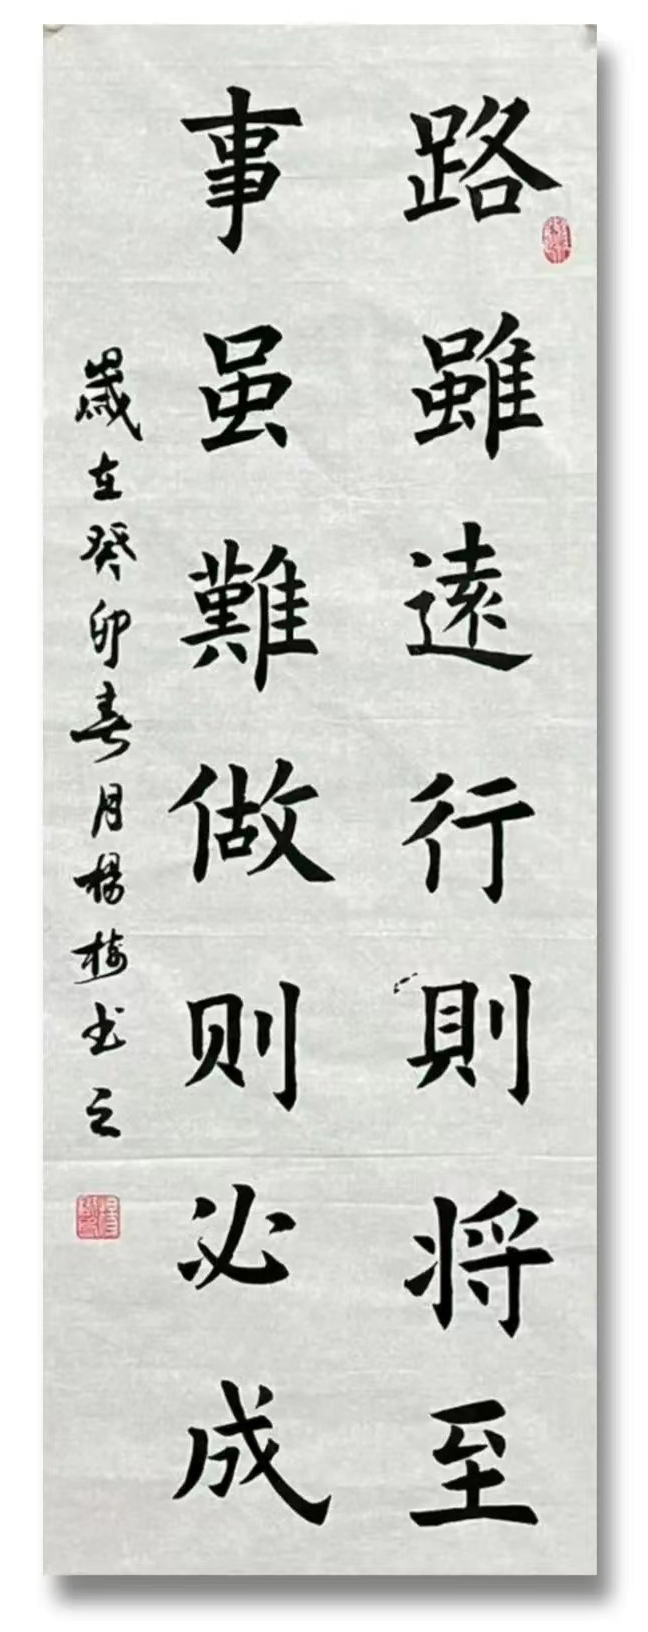 路雖遠行則将至
事虽難做则必成
歲在癸卯春月楊梅书之